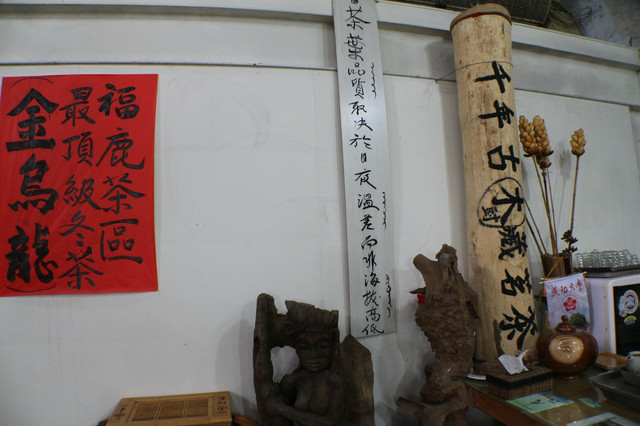 福鹿茶區
最頂級冬茶
(金烏龍)
茶葉品質取決於日夜溫差而非海拔高低
千年古木藏茗茶